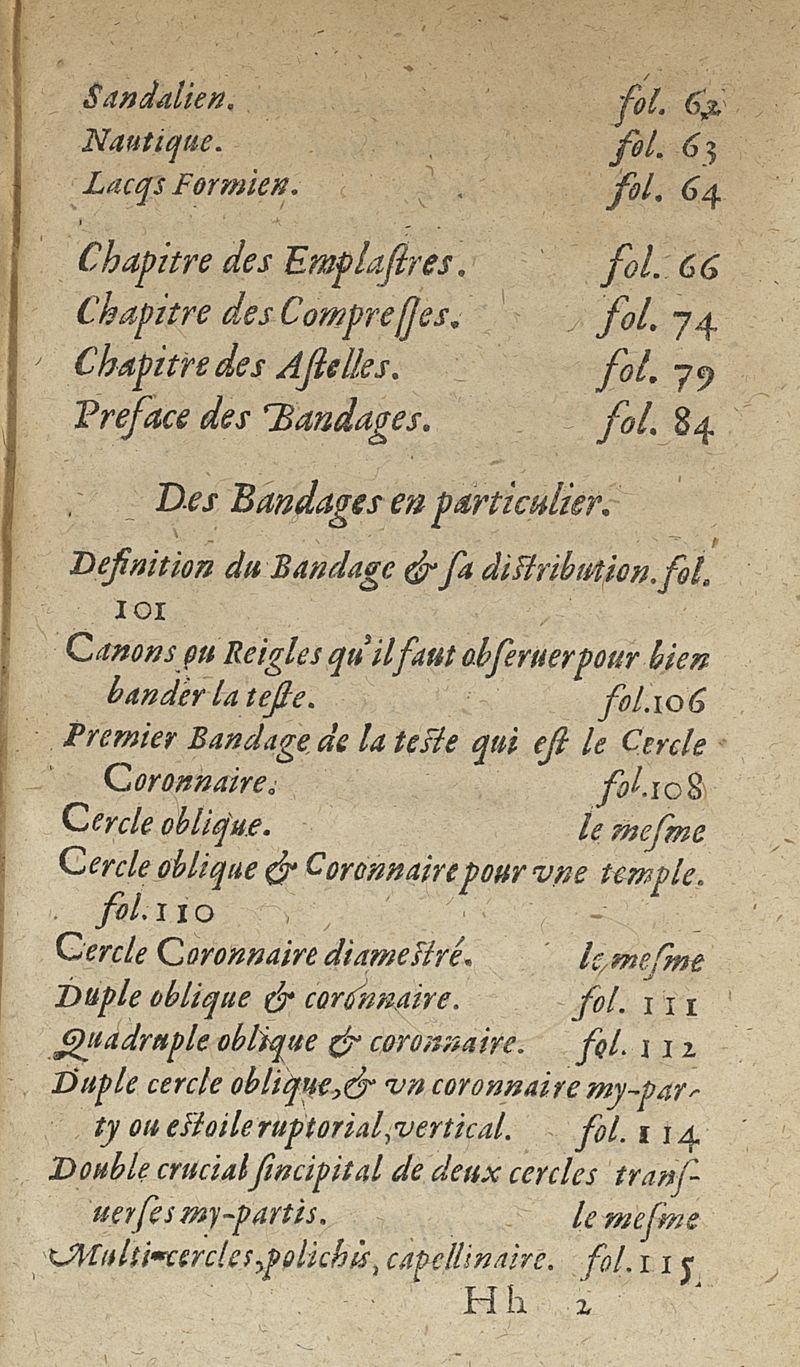 Sandalien. fol. 62
Nautique. fol. 63
Lacqs Formien. fol. 64
Chapitre des Emplaſtres. fol. 66
Chapitre des Compreſſes. fol. 74
Chapitre des Aſtelles. fol. 79
Preface des Bandages. fol. 84
Des Bandages en particulier.
Definition du Bandage & ſa diſtribution. fol.
101
Canons ou Reigles qu'il faut obſeruer pour bien
bander la teſte. fol. 106
Premier Bandage de la teſte qui eſt le Cercle
Coronnaire. fol. 108
Cercle oblique. le meſme
Cercle oblique & Coronnaire pour vne temple.
fol. 110
Cercle Coronnaire diameſtré. le meſme
Duple oblique & coronnaire. fol. 111
Quadruple oblique & coronnaire. fol. 112
Duple cercle oblique, & vn coronnaire my-par-
ty ou eſtoile ruptorial, vertical. fol. 114
Double crucial ſincipital de deux cercles tranſ-
uerſes my-partis. le meſme
Multi-cercles, polichis, capellinaire. fol. 115
Hh 2